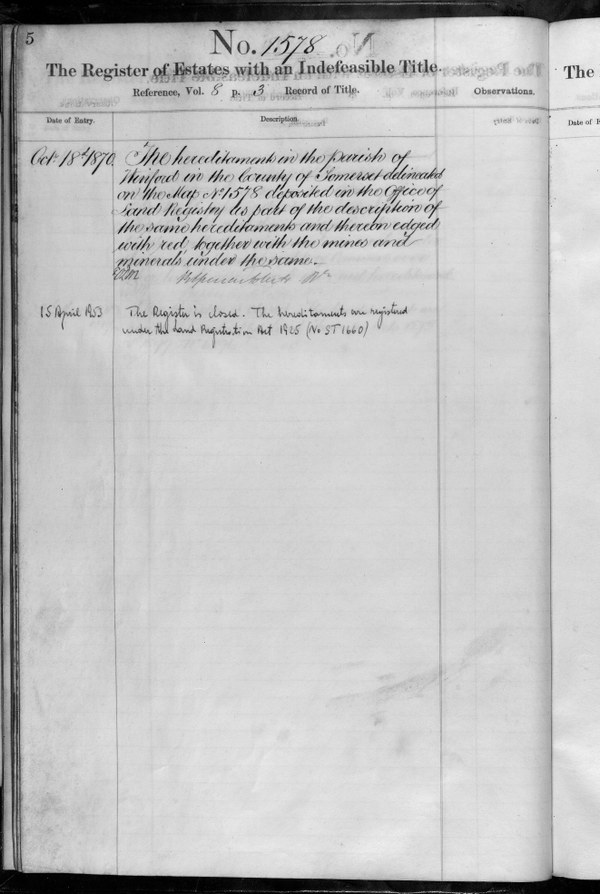 5
No. 1578
The Register of Estates with an Indefeasible Title.
Reference, Vol. 8 p. 3 Record of Title.
Observations.
Date of Entry.
Description.
Octr 18th 1870.
The hereditaments in the parish of
Winford in the County of Somerset delineated
on the Map No 1578 deposited in the Office of
Land Registry as part of the description of
the same hereditaments and thereon edged
with red, together with the mines and
minerals under the same.
15 April 1953
The Register is closed. The hereditaments are registered
under the Land Registration Act 1925 (No ST 1660)
The
Date of E